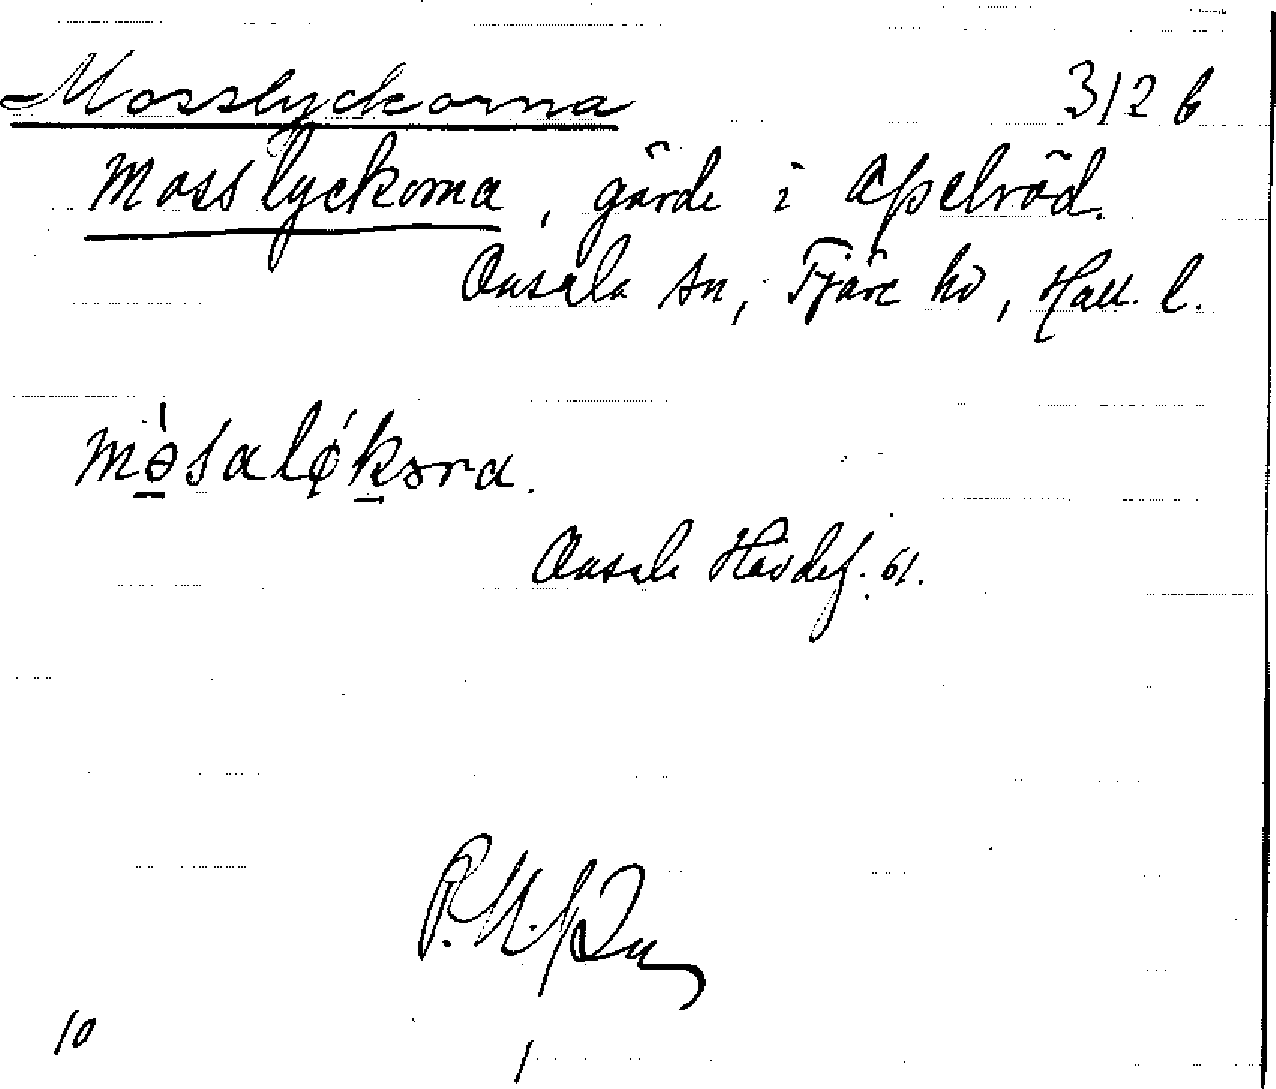 Mosslyckorna 312 b
Mosslyckorna, gärde i Apelröd.
Onsala sn, Fjäre hd, Hall. l.
məsaløkəra.
Onsala Hävdef. 61.
10
1